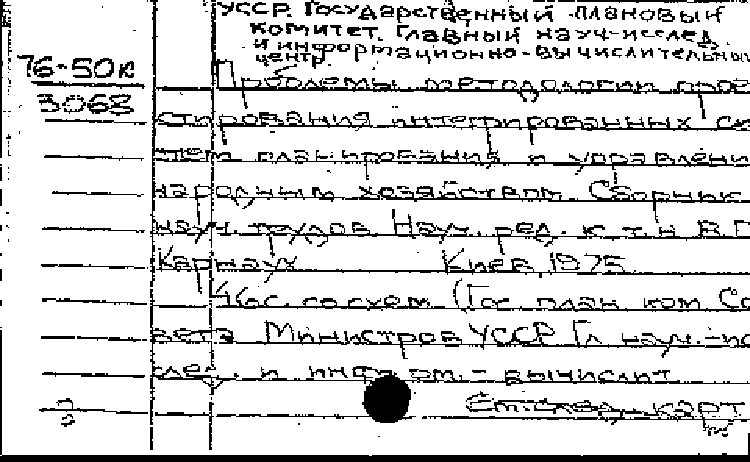 УССР. Государственный плановый
комитет. Главный науч.-исслед.
и информационно-вычислительный
центр.
76-50к
3063
Проблемы методологии прое-
ктирования интегрированных си-
стем планирования и управлени
народным хозяйством. Сборник
науч. трудов. Науч. ред. к.т.н. В.Г.
Карнаух Киев, 1975
46с. со схем. (Гос. план. ком. Со-
вета Министров УССР. Гл. науч.-ис-
след. и информ.-вычислит.
См. след. карт